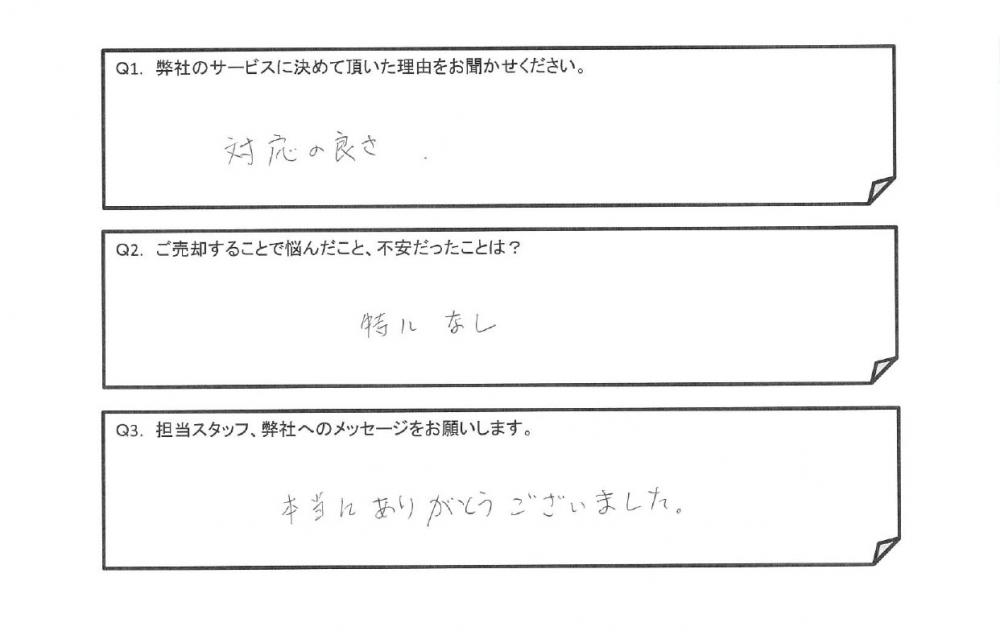 Q1. 弊社のサービスに決めて頂いた理由をお聞かせください。
対応の良さ.
Q2. ご売却することで悩んだこと、不安だったことは？
特になし
Q3. 担当スタッフ、弊社へのメッセージをお願いします。
本当にありがとうございました。